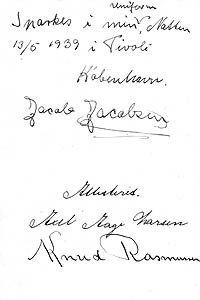 uniform
i min, Natten
13/5 1939 i Tivoli
København.
Jacob Jacobsen
Attesteres.
Aage Larsen
Knud Rasmussen